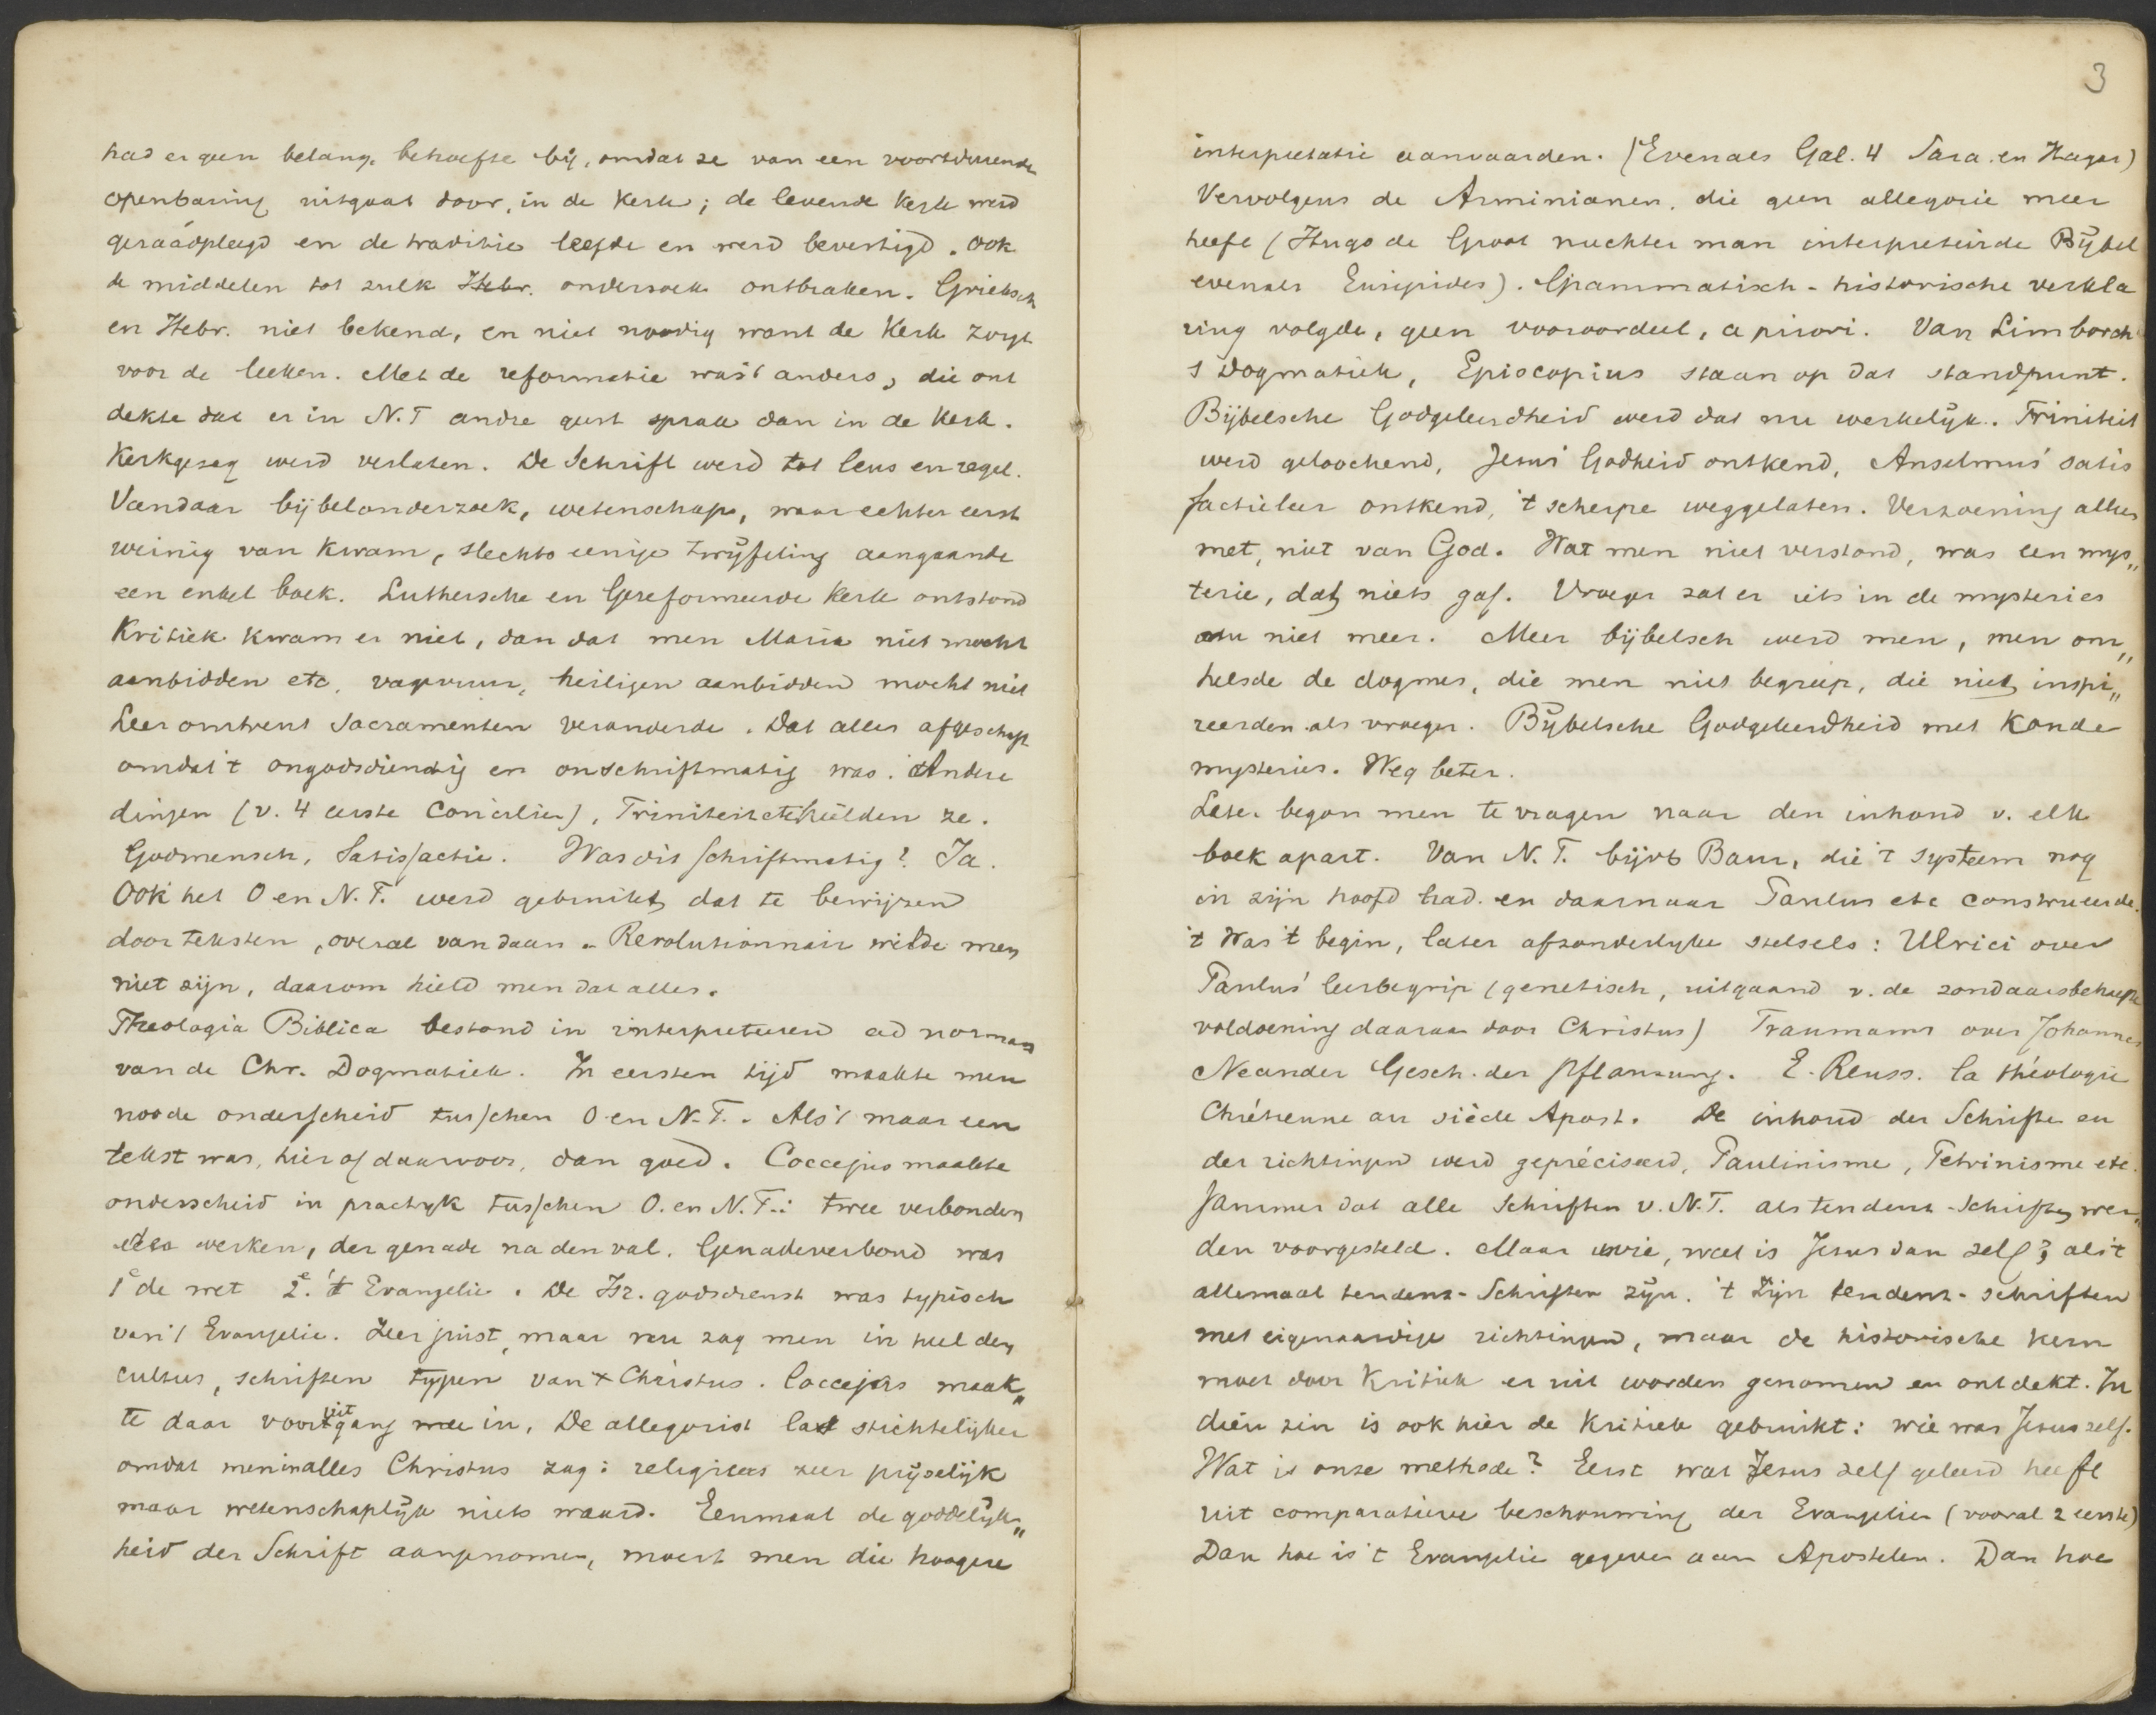 had er geen belang, behoefte bij, omdat ze van een voortdurende
openbaring uitgaat door, in de Kerk; de levende kerk werd
geraadpleegd en de traditie leefde en werd bevestigd. Ook
de middelen tot zulk Hebr. onderzoek ontbraken. Grieksch
en Hebr. niet bekend, en niet noodig want de Kerk zorgt
voor de leeken. Met de reformatie was 't anders, die ont
dekte dat er in N.T andre geest sprak dan in de Kerk.
Kerkgezag werd verlaten. De Schrift werd tot leus en regel.
Vandaar bijbelonderzoek, wetenschap, waar echter eerst
weinig van kwam, slechts eenige twijfeling aangaande
een enkel boek. Luthersche en Gereformeerde Kerk ontstond
Kritiek kwam er niet, dan dat men Maria niet mocht
aanbidden etc, vagevuur, heiligen aanbidden mocht niet
Leer omtrent Sacramenten veranderde. Dat alles afgeschaft
omdat 't ongodsdienstig en onschriftmatig was. Andere
dingen (v. 4 eerste Concilien), Triniteit etc hielden ze.
Godmensch, Satisfactie. Was dit schriftmatig? Ja.
Ook het O en N.T. werd gebruikt dat te bewijzen
door teksten, overal vandaan. Revolutionnair wilde men
niet zijn, daarom hield men dat alles.
Theologia Biblica bestond in interpreteren ad normam
van de Chr. Dogmatiek. In eersten tijd maakte men
noode onderscheid tusschen O en N.T.. Als 't maar een
tekst was, hier of daarvoor, dan goed. Coccejus maakte
onderscheid in practijk tusschen O. en N.T.: twee verbonden
werken, der genade na den val. Genadeverbond was
1e de wet 2e. 't Evangelie. De Isr. godsdienst was typisch
van 't Evangelie. Zeer juist, maar nu zag men in heel den
cultus, schriften typen van Christus. Coccejus maak„
te daar vooruitgang mee in. De allegorist laat stichtelijker
omdat men in alles Christus zag: religieus zeer prijselijk
maar wetenschaplijk niets waard. Eenmaal de goddelijk„
heid der Schrift aangenomen, moest men die hoogere
3
interpretatie aanvaarden. (Evenals Gal. 4 Sara en Hagar)
Vervolgens de Arminianen, die geen allegorie meer
heeft (Hugo de Groot nuchter man interpreteerde Bijbel
evenals Euripides). Grammatisch-historische verkla
ring volgde, geen vooroordeel, a priori. Van Limborch
s Dogmatiek, Episcopius staan op dat standpunt.
Bijbelsche Godgeleerdheid werd dat nu werkelijk. Triniteit
werd geloochend, Jesus' Godheid ontkend, Anselmus' satis
factieleer ontkend, 't scherpe weggelaten. Verzoening alleen
met, niet van God. Wat men niet verstond, was een mys„
terie, dat niets gaf. Vroeger zat er iets in de mysteries
nu niet meer. Meer bijbelsch werd men, men om„
helsde de dogmes, die men niet begreep, die niet inspi„
reerden als vroeger. Bijbelsche Godgeleerdheid met koude
mysteries. Weg beter.
Later begon men te vragen naar den inhoud v. elk
boek apart. Van N.T. bijvb Baur, die 't systeem nog
in zijn hoofd had en daarnaar Paulus etc construeerde.
't Was 't begin, later afzonderlijke stelsels: Ulrici over
Paulus' leerbegrip (genetisch, uitgaand v. de zondaarsbehoefte
voldoening daaraan door Christus) Traumann over Johannes
Neander Gesch. der Pflanzung. E. Reuss. la théologie
Chrétienne au siècle Apost. De inhoud der Schriften en
der richtingen werd gepréciseerd, Paulinisme, Petrinisme etc.
Jammer dat alle Schriften v. N.T. als tendenz-Schriften wer„
den voorgesteld. Maar wie, wat is Jesus dan zelf? als 't
allemaal tendenz-Schriften zijn. 't Zijn tendenz-schriften
met eigenaardige richtingen, maar de historische kern
moet door Kritiek er uit worden genomen en ontdekt. In
dien zin is ook hier de Kritiek gebruikt: wie was Jesus zelf.
Wat is onze methode? Eerst wat Jesus zelf geleerd heeft
uit comparatieve beschouwing der Evangelien (vooral 2 eerste)
Dan hoe is 't Evangelie gegeven aan Apostelen. Dan hoe